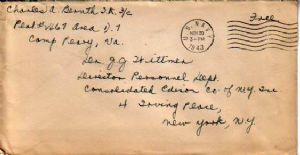 Charles A. Beruth S.K. 3/c
Area D-7
Camp Peary, Va.
U.S. NAVY
NOV 20
3-PM
1943
Free
Mr. J.J. Wittmer
Director Personnel Dept.
Consolidated Edison Co. of N.Y. Inc
4 Irving Place,
New York, N.Y.